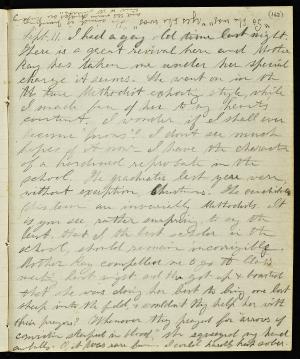 (162)
Sept. 11. I had a gay old time last night.
There is a great revival here and Mother
Ray has taken me under her special
charge it seems. She went on in the
old time Methodist exhorting style, while
I made fun of her to my heart's
content. I wonder if I shall ever
become "pious"? I don't see much
hopes of it now. I have the character
of a hardened reprobate in the
school. The graduates last year were
without exception Christians. The candidates
this term are invariably Methodists. It
is you see rather surprising to say the
least, that I the best scholar in the
school, should remain incorrigible.
Mother Ray compelled me to go to the
meeting last night and then got up & boasted
that she was doing her best to bring one lost
sheep into the fold & wouldn't they help her with
their prayers? Whenever they prayed for arrows of
conviction steeped in blood, she squeezed my hand
could hardly keep sober.